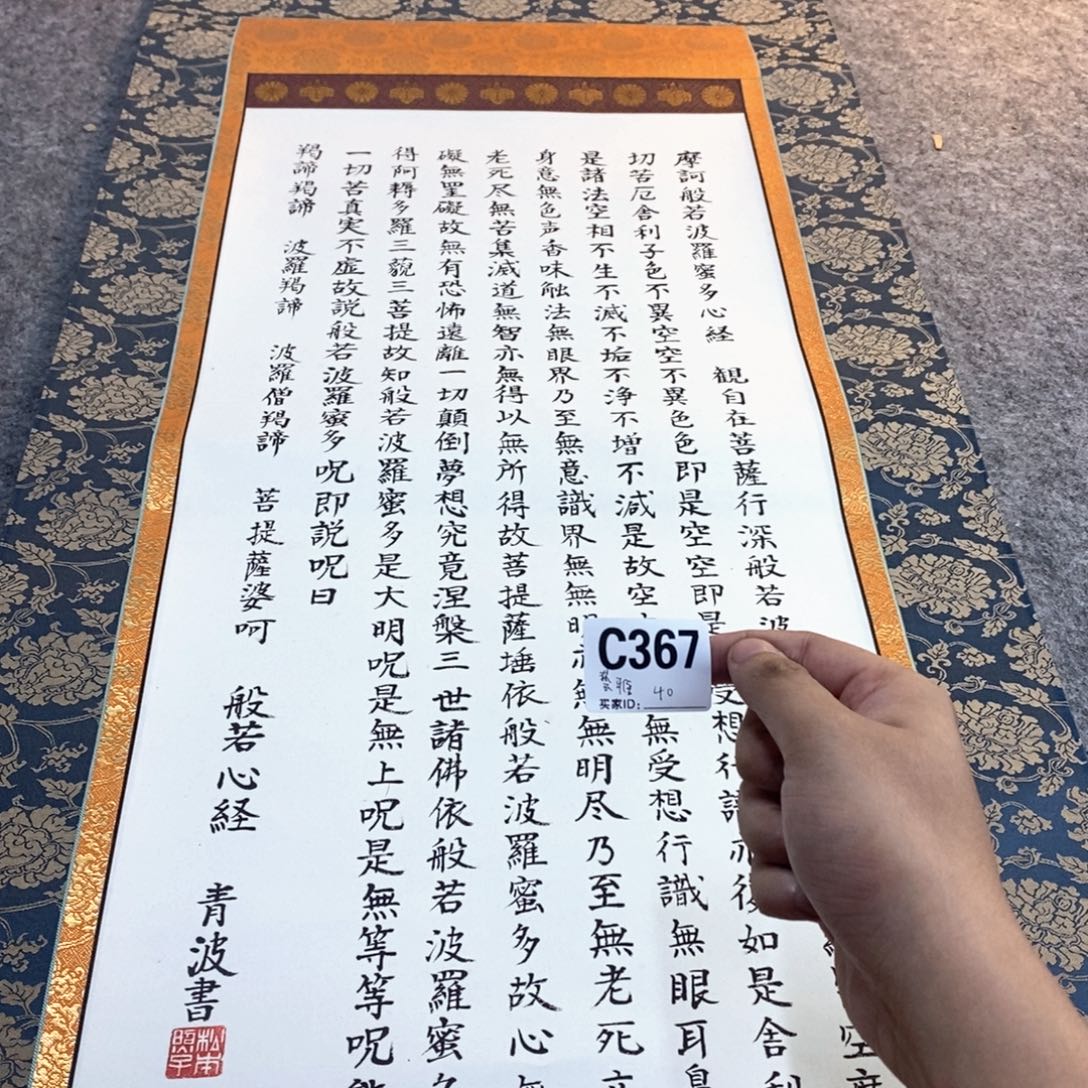 摩訶般若波羅蜜多心経 観自在菩薩行深般若波 空度
切苦厄舎利子色不異空空不異色色即是空空即是 受想行識亦復如是舎利
是諸法空相不生不滅不垢不浄不増不減是故空 無受想行識無眼耳鼻
身意無色声香味触法無眼界乃至無意識界無無明亦無無明尽乃至無老死亦
老死尽無苦集滅道無智亦無得以無所得故菩提薩埵依般若波羅蜜多故心無
礙無罣礙故無有恐怖遠離一切顛倒夢想究竟涅槃三世諸佛依般若波羅蜜多
得阿耨多羅三藐三菩提故知般若波羅蜜多是大明呪是無上呪是無等等呪能
一切苦真実不虚故説般若波羅蜜多呪即説呪曰
羯諦羯諦 波羅羯諦 波羅僧羯諦 菩提薩婆呵 般若心経 青波書
松本
照子
C367
雅 40
买家ID: